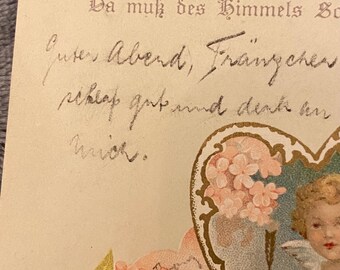 Da muß des Himmels So
Guten Abend, Fränzchen
schlaf gut und denk an
mich.